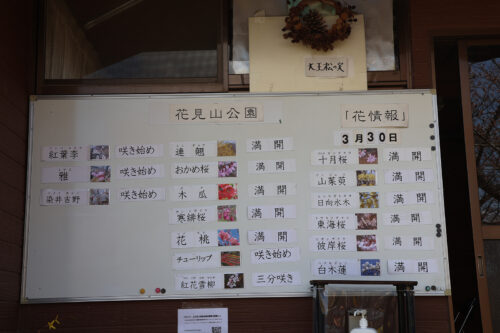 大王松の実
花見山公園
「花情報」
3月30日
紅葉李 咲き始め
雅 咲き始め
染井吉野 咲き始め
連翹 満開
おかめ桜 満開
木瓜 満開
寒緋桜 満開
花桃 満開
チューリップ 咲き始め
紅花雪柳 三分咲き
十月桜 満開
山茱萸 満開
日向水木 満開
東海桜 満開
彼岸桜 満開
白木蓮 満開